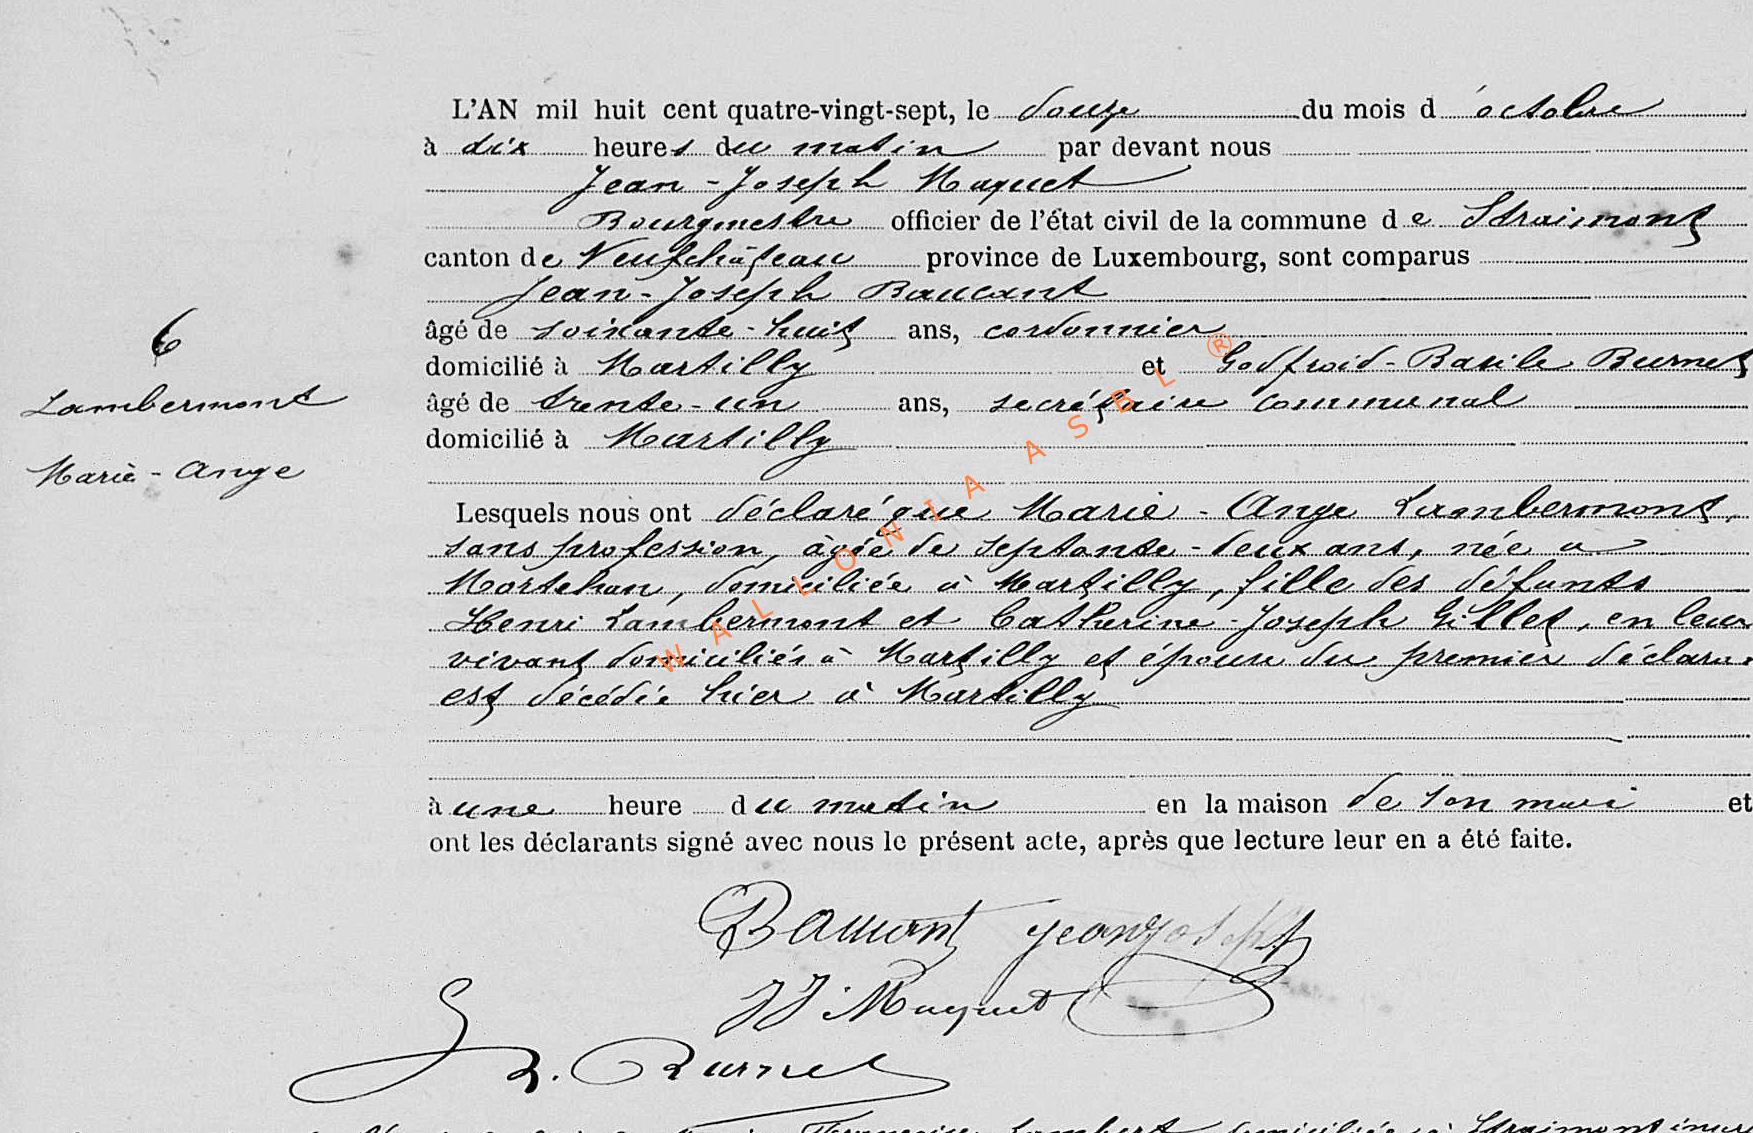 L'AN mil huit cent quatre-vingt-sept, le douze du mois d'octobre
à dix heures du matin par devant nous
Jean-Joseph Maquet
Bourgmestre officier de l'état civil de la commune de Straimont
canton de Neufchâteau province de Luxembourg, sont comparus
Jean-Joseph Baucant
âgé de soixante-huit ans, cordonnier
domicilié à Martilly et Godfroid-Basile Burnet
âgé de trente-un ans, secrétaire communal
domicilié à Martilly
6
Lambermont
Marie-Ange
Lesquels nous ont déclaré que Marie-Ange Lambermont,
sans profession, âgée de septante-deux ans, née à
Mortehan, domiciliée à Martilly, fille des défunts
Henri Lambermont et Catherine-Joseph Gillet, en leur
vivant domiciliés à Martilly et épouse du premier déclara:
est décédée hier à Martilly
à une heure du matin en la maison de son mari et
ont les déclarants signé avec nous le présent acte, après que lecture leur en a été faite.
Baucant jean joseph
JJ Maquet
B. Burnet
WALLONIA ASBL ®